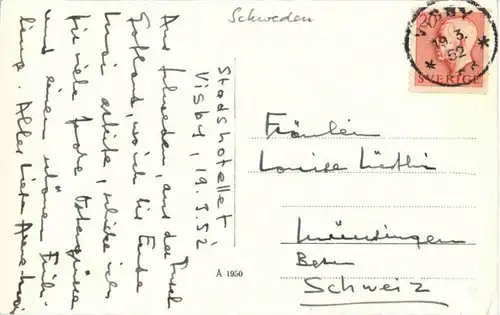 Schweden
VISBY
19.3.
52
20
SVERIGE
Stadshotellet
Visby, 19.3.52
Aus Schweden, aus der Insel
Gotland, wo ich bis Ende
Mai arbeite, schicke ich
für viele frohe Ostergrüsse
und einen schönen Früh-
ling. Alles Liebe
Fräulein
Louise
Münsingen
Bern
Schweiz
A 1950